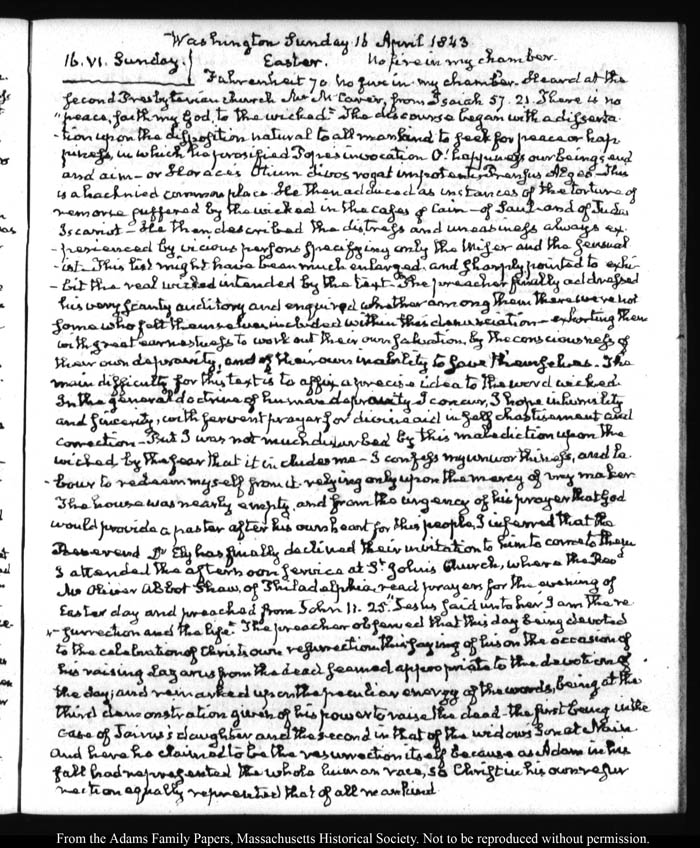 Washington Sunday 16 April 1843
16. VI. Sunday. Easter. No fire in my chamber.
Fahrenheit 70. No fire in my chamber. Heard at the
second Presbyterian church Mr from Isaiah 57. 21. There is no
"peace, saith my God, to the wicked." The discourse began with a disserta-
-tion upon the disposition natural to all mankind to seek for peace or hap
piness, in which he prosified Popes invocation O! happiness our beings end
and aim—or Horaces Otium divos rogat impotenti Prensus Ægeo—This
is a hacknied common place. He then adduced as instances of the torture of
remorse suffered by the wicked in the cases of Cain—of Saul and of Judas
Iscariot—He then described the distress and uneasiness always ex-
-perienced by vicious persons specifying only the Miser and the sensual
-ist. This list might have been much enlarged, and sharply pointed to exhi-
-bit the real wicked intended by the text. The preacher finally addressed
his very scanty auditory and enquired whether among them there were not
some who felt themselves included within this denunciation—exhorting them
with great earnestness to work out their own salvation, by the consciousness of
their own depravity, and of their own inability to save themselves. The
main difficulty for this text is to affix a precise idea to the word wicked.
In the general doctrine of human depravity I concur, I hope in humility
and sincerity, with fervent prayer for divine aid in self chastisement and
correction—But I was not much disturbed by this malediction upon the
wicked by the fear that it includes me—I confess my unworthiness, and la-
-bour to redeem myself from it relying only upon the mercy of my maker
The house was nearly empty, and from the urgency of his prayer that God
would provide a pastor after his own heart for this people, I inferred that the
Reverend Dr Ely has finally declined their invitation to him to come to them
I attended the afternoon service at St. John's Church, where the Revd.
Mr Oliver Abbot Shaw, of Philadelphia, read prayers for the evening of
Easter day and preached from John 11. 25. "Jesus said unto her, I am the re
-surrection and the life." The preacher observed that this day being devoted
to the celebration of Christs own resurrection, this saying of his on the occasion of
his raising Lazarus from the dead seemed appropriate to the devotion of
the day, and remarked upon the peculiar energy of the words, being at the
third demonstration given of his power to raise the dead—the first being in the
case of Jairus's daughter and the second in that of the widows Son at Nain
And here he claimed to be the resurrection itself because as Adam in his
fall had represented the whole human race, so Christ in his own resur
rection equally represented that of all mankind
From the Adams Family Papers, Massachusetts Historical Society. Not to be reproduced without permission.